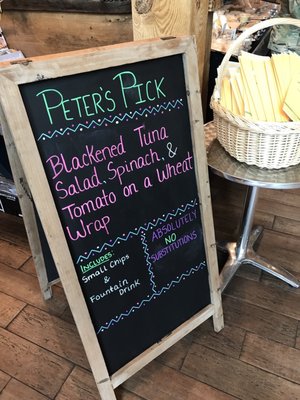 PETER'S PICK
Blackened Tuna
Salad, Spinach, &
Tomato on a Wheat
Wrap
INCLUDES:
Small Chips
&
Fountain Drink
ABSOLUTELY
NO
SUBSTITUTIONS